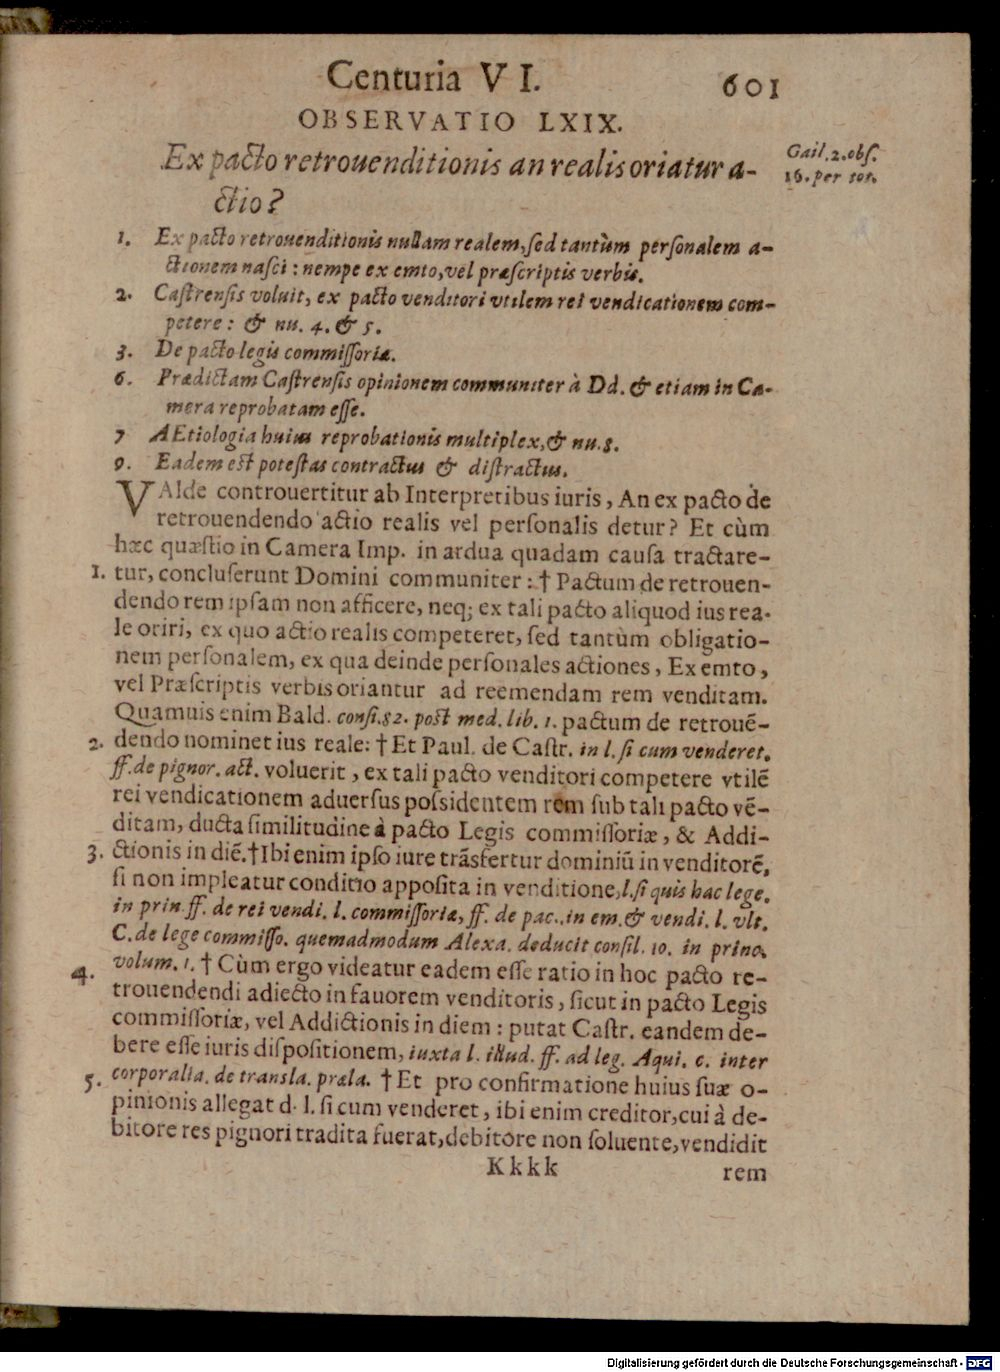 Centuria VI. 601
OBSERVATIO LXIX.
Ex pacto retrouenditionis an realis oriatur a-
ctio?
Gail. 2. obſ.
16. per tot.
1. Ex pacto retrouenditionis nullam realem, ſed tantùm perſonalem a-
ctionem naſci : nempe ex emto, vel præſcriptis verbis.
2. Caſtrenſis voluit, ex pacto venditori vtilem rei vendicationem com-
petere : & nu. 4. & 5.
3. De pacto legis commiſſoriæ.
6. Prædictam Caſtrenſis opinionem communiter à Dd. & etiam in Ca-
mera reprobatam eſſe.
7 AEtiologia huius reprobationis multiplex, & nu. 8.
9. Eadem eſt poteſtas contractus & diſtractus.
VAlde controuertitur ab Interpretibus iuris, An ex pacto de
retrouendendo actio realis vel perſonalis detur? Et cùm
hæc quæſtio in Camera Imp. in ardua quadam cauſa tractare-
1. tur, concluſerunt Domini communiter : † Pactum de retrouen-
dendo rem ipſam non afficere, neq; ex tali pacto aliquod ius rea-
le oriri, ex quo actio realis competeret, ſed tantùm obligatio-
nem perſonalem, ex qua deinde perſonales actiones, Ex emto,
vel Præſcriptis verbis oriantur ad reemendam rem venditam.
Quamuis enim Bald. conſi. 82. post med. lib. 1. pactum de retrouē-
2. dendo nominet ius reale: † Et Paul. de Caſtr. in l. ſi cum venderet.
ff. de pignor. act. voluerit, ex tali pacto venditori competere vtilē
rei vendicationem aduerſus poſsidentem rem ſub tali pacto vē-
ditam, ducta ſimilitudine à pacto Legis commiſſoriæ, & Addi-
3. ctionis in diē. † Ibi enim ipſo iure trāsfertur dominiū in venditorē,
ſi non impleatur conditio appoſita in venditione, l. ſi quis hac lege.
in prin. ff. de rei vendi. l. commiſſoriæ, ff. de pac. in em. & vendi. l. vlt.
C. de lege commiſſo. quemadmodum Alexa. deducit conſil. 10. in princ.
4. volum. 1. † Cùm ergo videatur eadem eſſe ratio in hoc pacto re-
trouendendi adiecto in fauorem venditoris, ſicut in pacto Legis
commiſſoriæ, vel Addictionis in diem : putat Caſtr. eandem de-
bere eſſe iuris diſpoſitionem, iuxta l. illud. ff. ad leg. Aqui. c. inter
5. corporalia. de transla. præla. † Et pro confirmatione huius ſuæ o-
pinionis allegat d. l. ſi cum venderet, ibi enim creditor, cui à de-
bitore res pignori tradita fuerat, debitore non ſoluente, vendidit
Kkkk rem
Digitalisierung gefördert durch die Deutsche Forschungsgemeinschaft - DFG